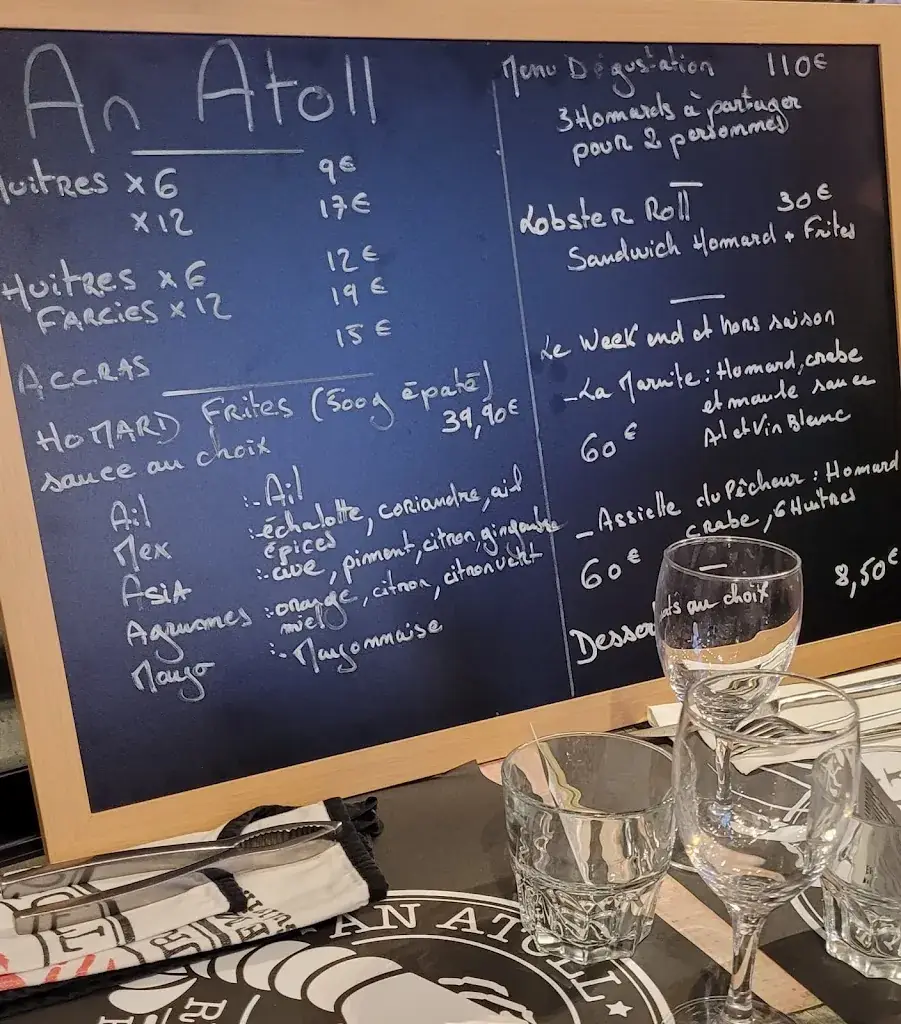 An Atoll
Huitres x 6 9€
x 12 17€
Huitres x 6 12€
FARCIES x 12 19€
ACCRAS 15€
HOMARD FRITES (500g épaté)
sauce au choix 39,90€
Ail :- Ail
Mex :- échalotte, coriandre, ail
épices
ASIA :- cive, piment, citron, gingembre
Agrumes :- orange, citron, citron vert
miel
Mayo :- Mayonnaise
Menu Dégustation 110€
3 Homards à partager
pour 2 personnes
Lobster Roll 30€
Sandwich Homard + Frites
Le Week end et hors saison
- La Marmite : Homard, crabe
et moule sauce
60€ Ail et Vin Blanc
- Assiette du Pêcheur : Homard
crabe, 6 Huitres
60€
Desserts au choix 8,50€
AN ATOLL